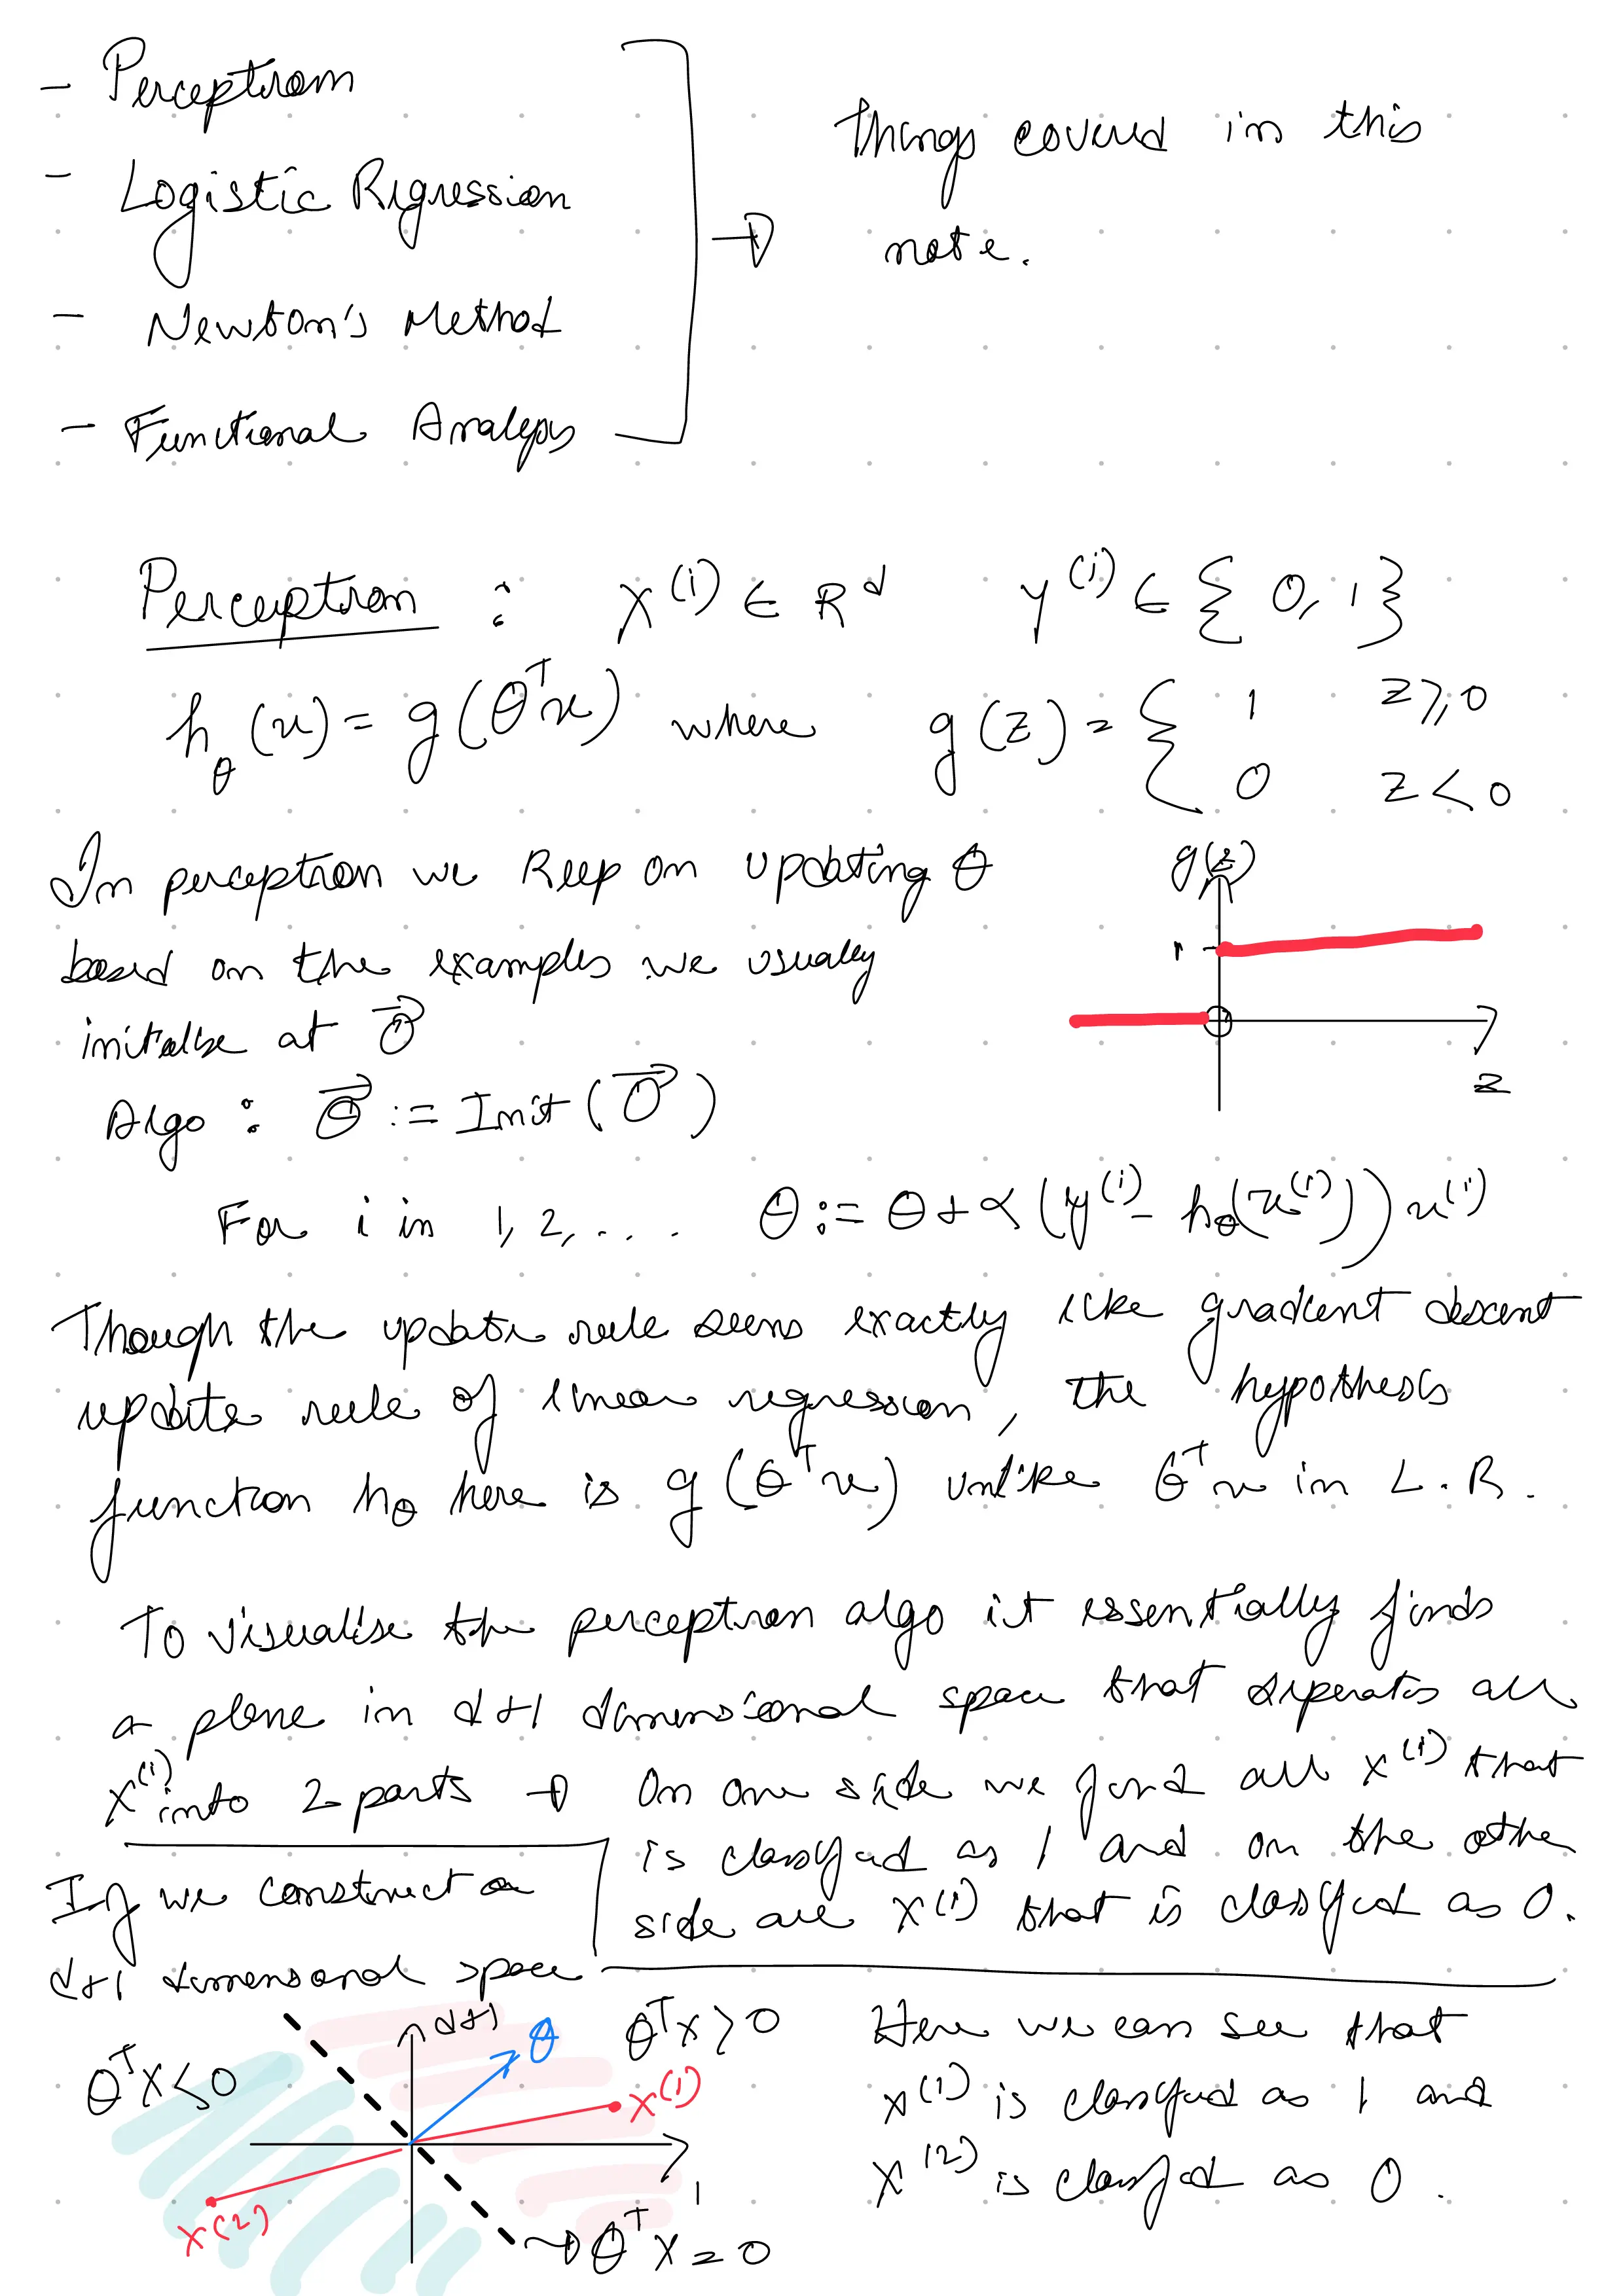 - Perceptron
- Logistic Regression
- Newton's Method
- Functional Analysis
Things covered in this
note.
Perceptron : X^(i) ∈ R^d y^(i) ∈ { 0, 1 }
h_θ (x) = g(θ^T x) where g(z) = { 1 z ⩾ 0
0 z < 0
In perceptron we keep on updating θ
based on the examples we usually
initialise at 0⃗
g(z)
1
z
Algo : θ⃗ := Init ( 0⃗ )
For i in 1, 2, . . . . θ := θ + α (y^(i) - h_θ(x^(i))) x^(i)
Though the update rule seems exactly like gradient descent
update rule of linear regression, the hypothesis
function h_θ here is g (θ^T x) unlike θ^T x in L.R.
To visualise the perceptron algo it essentially finds
a plane in d+1 dimensional space that seperates all
X^(i) into 2 parts → On one side we find all X^(i) that
is classified as 1 and on the other
side are X^(i) that is classified as 0.
If we construct a
d+1 dimensional space
d+1
θ
θ^T X > 0
θ^T X < 0
X^(1)
X^(2)
1
→ θ^T X = 0
Here we can see that
X^(1) is classified as 1 and
X^(2) is classified as 0.